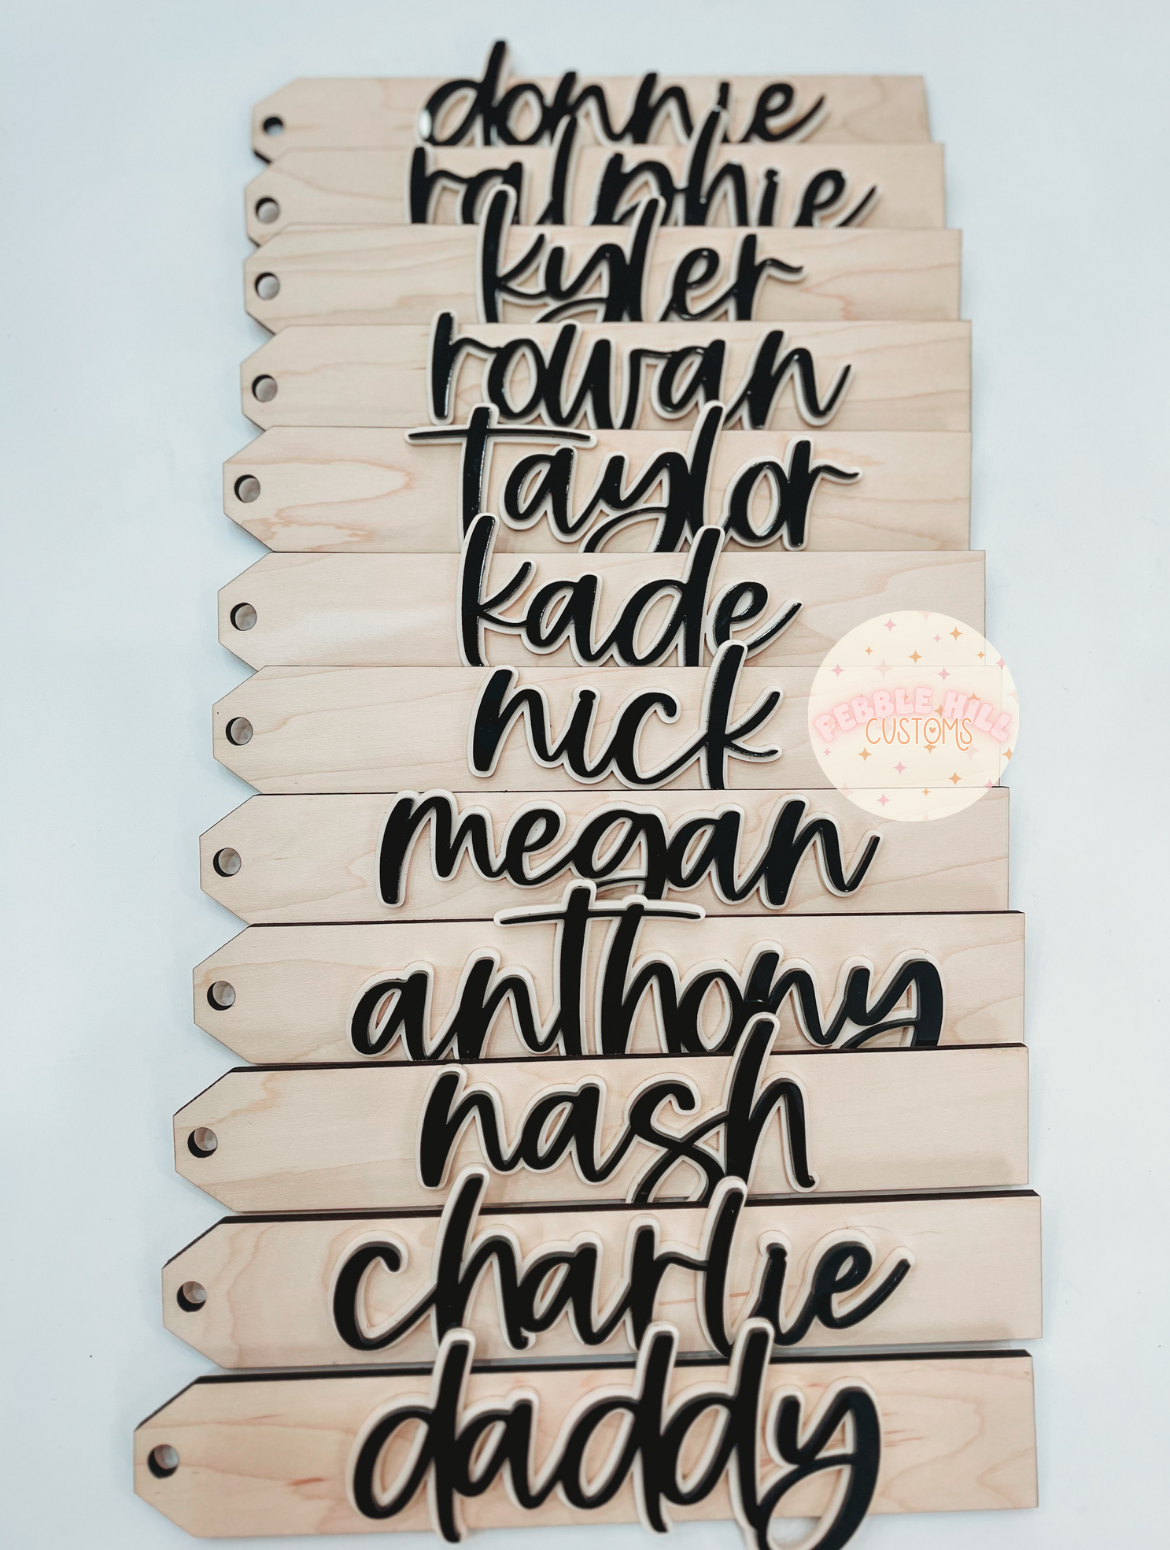 donnie
ralphie
kyler
rowan
taylor
kade
nick
PEBBLE HILL
CUSTOMS
megan
anthony
nash
charlie
daddy